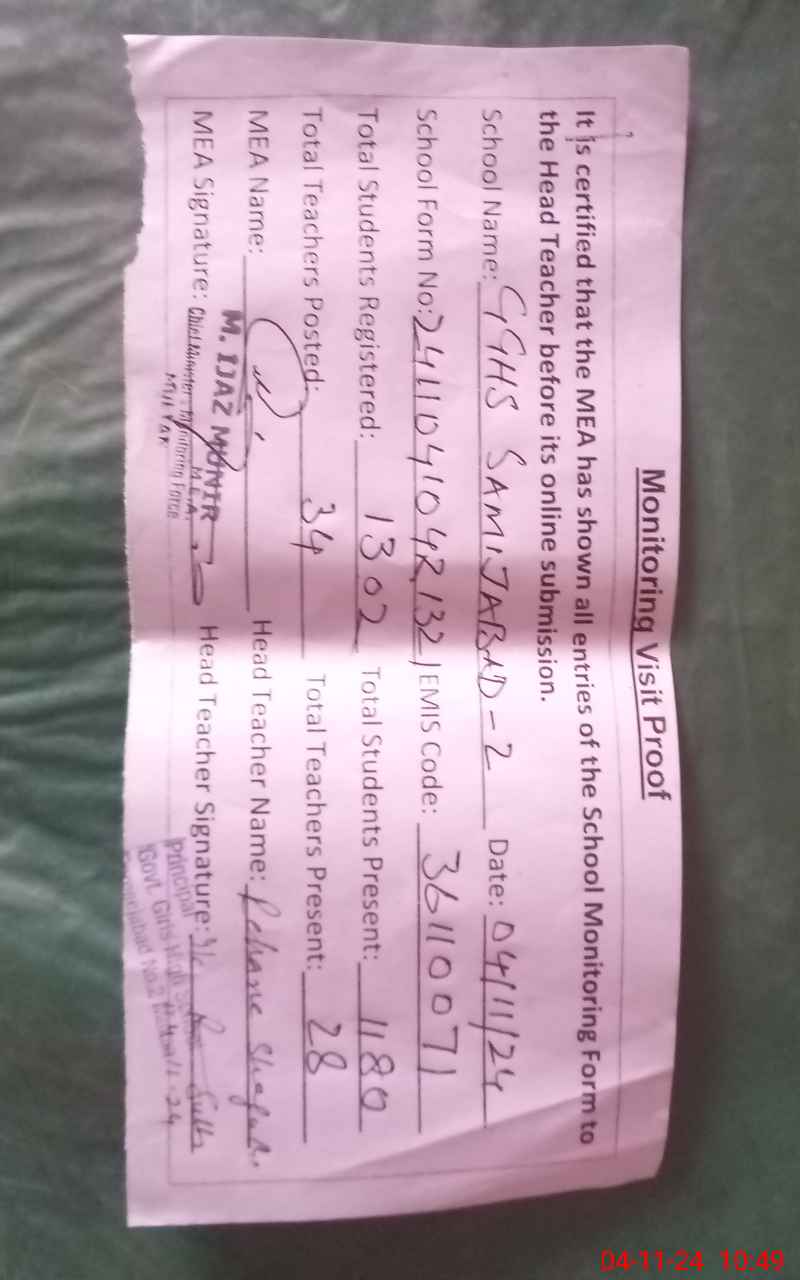 Monitoring Visit Proof
It is certified that the MEA has shown all entries of the School Monitoring Form to
the Head Teacher before its online submission.
School Name: GGHS SAMIJABAD-2 Date: 04/11/24
School Form No: EMIS Code: 36110071
Total Students Registered: 1302 Total Students Present: 1180
Total Teachers Posted: 34 Total Teachers Present: 28
MEA Name: Head Teacher Name:
M. IJAZ MUNIR
M.E.A.
MEA Signature: Chief Minister's Monitoring Force Head Teacher Signature:
Multan
Principal
Govt. Girls High School
No.2
04-11-24 10:49